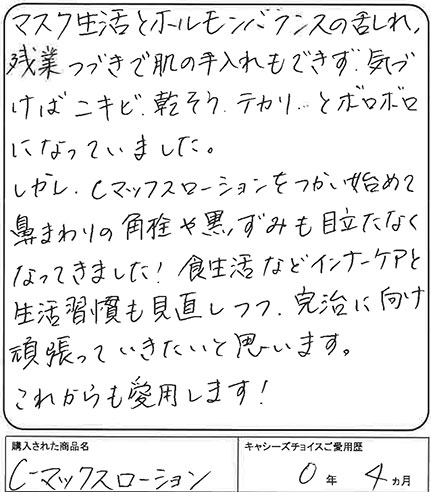 マスク生活とホルモンバランスの乱れ、
残業つづきで肌の手入れもできず、気づ
けばニキビ、乾そう、テカリ…とボロボロ
になっていました。
しかし、Cマックスローションをつかい始めて
鼻まわりの角栓や黒ずみも目立たなく
なってきました！食生活などインナーケアと
生活習慣も見直しつつ、完治に向け
頑張っていきたいと思います。
これからも愛用します！
購入された商品名
C-マックスローション
キャシーズチョイスご愛用歴
0年4ヵ月